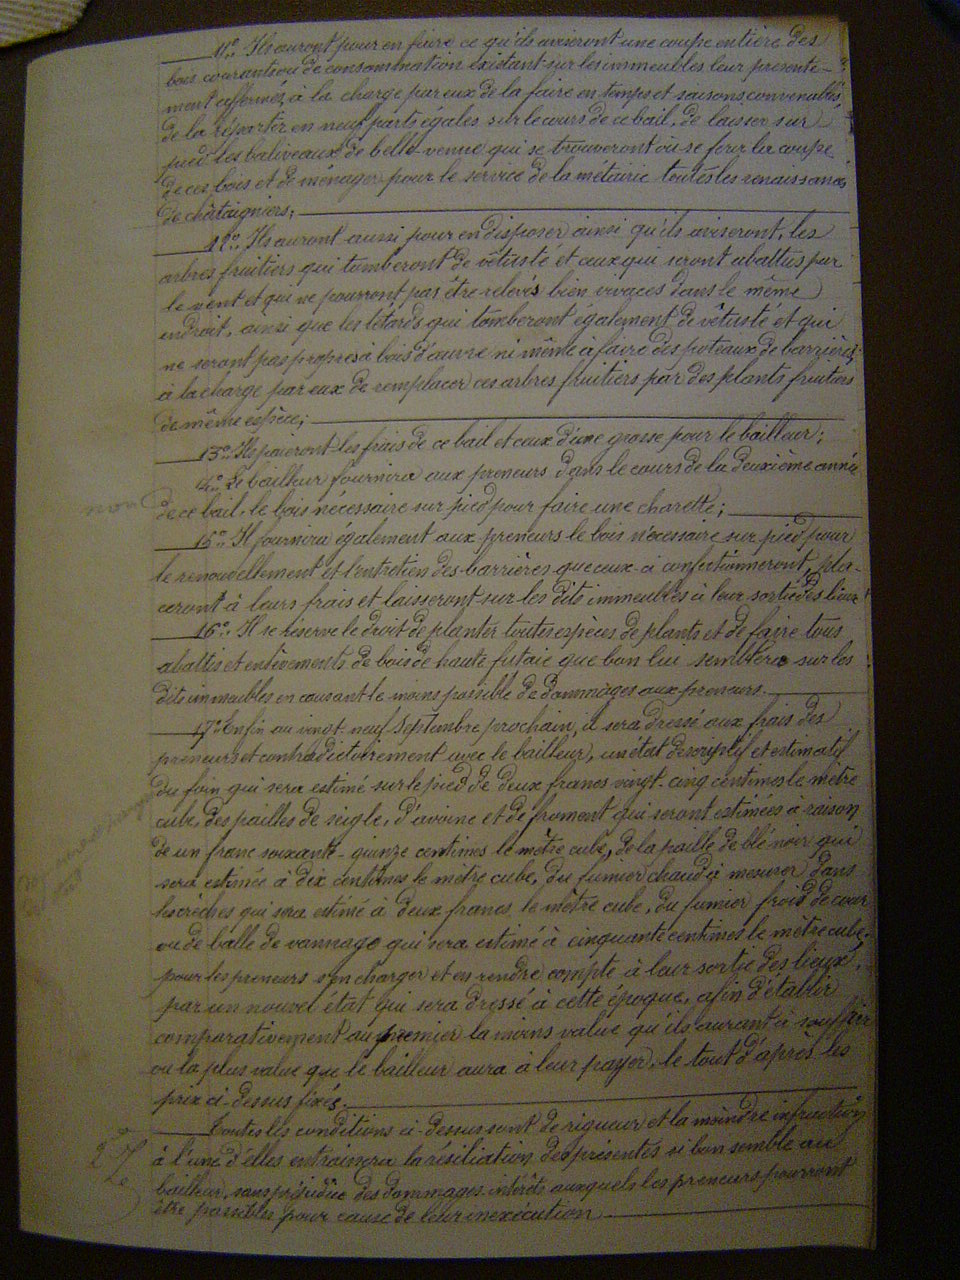 11° Ils auront pour en faire ce qu'ils aviseront une coupe entière des
bois courants ou de consommation existant sur les immeubles leur présente-
ment affermés, à la charge par eux de la faire en temps et saisons convenables,
de la répartir en neuf parts égales sur le cours de ce bail, de laisser sur
pied les baliveaux de belle venue qui se trouveront où se fera la coupe
de ces bois et de ménager pour le service de la métairie toutes les renaissances
de châtaigniers;
12° Ils auront aussi pour en disposer ainsi qu'ils aviseront, les
arbres fruitiers qui tomberont de vétusté et ceux qui seront abattus par
le vent et qui ne pourront pas être relevés bien vivaces dans le même
endroit, ainsi que les tétards qui tomberont également de vétusté et qui
ne seront pas propres à bois d'œuvre ni même à faire des poteaux de barrières
à la charge par eux de remplacer ces arbres fruitiers par des plants fruitiers
de même espèce;
13° Ils paieront les frais de ce bail et ceux d'une grosse pour le bailleur;
14° Le bailleur fournira aux preneurs dans le cours de la deuxième année
non
de ce bail, le bois nécessaire sur pied pour faire une charette;
15° Il fournira également aux preneurs le bois nécessaire sur pied pour
le renouvellement et l'entretien des barrières que ceux-ci confectionneront, pla-
ceront à leurs frais et laisseront sur les dits immeubles à leur sortie des lieux
16° Il se réserve le droit de planter toutes espèces de plants et de faire tous
abattis et enlèvements de bois de haute futaie que bon lui semblera sur les
dits immeubles en causant le moins possible de dommages aux preneurs.
17° Enfin au vingt-neuf Septembre prochain, il sera dressé aux frais des
preneurs et contradictoirement avec le bailleur, un état descriptif et estimatif
du foin qui sera estimé sur le pied de deux francs vingt-cinq centimes le mètre
cube, des pailles de seigle, d'avoine et de froment qui seront estimées à raison
de un franc soixante-quinze centimes le mètre cube, de la paille de blé noir qui
sera estimée à dix centimes le mètre cube, du fumier chaud à mesurer dans
les crèches qui sera estimé à deux francs le mètre cube, du fumier froid de cour
ou de balle de vannage qui sera estimé à cinquante centimes le mètre cube,
pour les preneurs s'en charger et en rendre compte à leur sortie des lieux,
par un nouvel état qui sera dressé à cette époque, afin d'établir
comparativement au premier la moins value qu'ils auront à souffrir
ou la plus value que le bailleur aura à leur payer, le tout d'après les
prix ci-dessus fixés.
Toutes les conditions ci-dessus sont de rigueur et la moindre infraction
à l'une d'elles entrainera la résiliation des présentes si bon semble au
bailleur, sans préjudice des dommages-intérêts auxquels les preneurs pourront
être passibles pour cause de leur inexécution